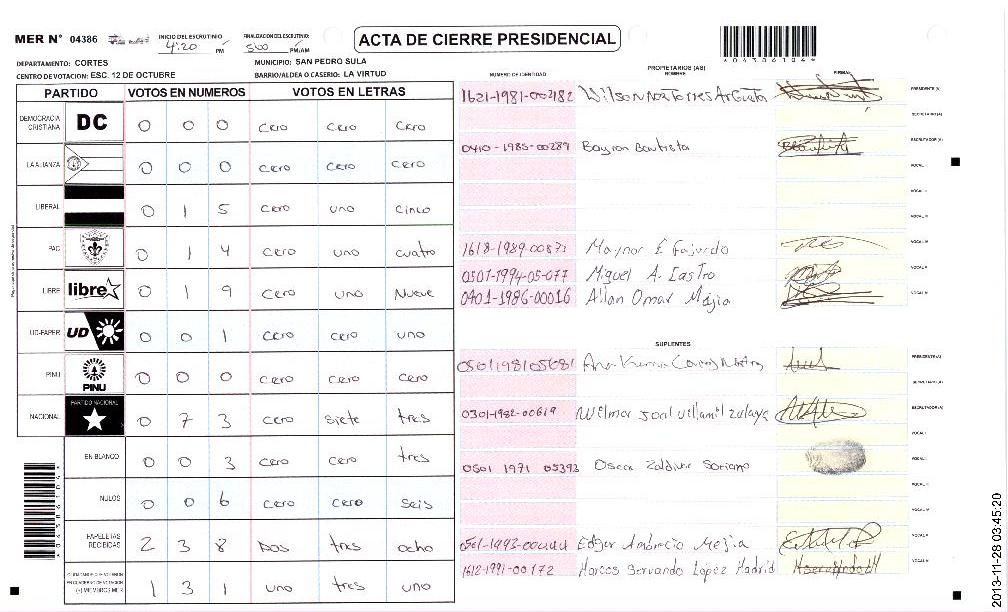 MER N° 04386 INICIO DEL ESCRUTINIO 4:20 PM FINALIZACION DEL ESCRUTINIO: 5:00 PM/AM
ACTA DE CIERRE PRESIDENCIAL
*04386104*
DEPARTAMENTO: CORTES MUNICIPIO: SAN PEDRO SULA
CENTRO DE VOTACION: ESC. 12 DE OCTUBRE BARRIO/ALDEA O CASERIO: LA VIRTUD
PARTIDO VOTOS EN NUMEROS VOTOS EN LETRAS
DEMOCRACIA CRISTIANA DC 0 0 0 cero cero cero
LA ALIANZA 0 0 0 cero cero cero
LIBERAL 0 1 5 cero uno cinco
PAC 0 1 4 cero uno cuatro
LIBRE libre 0 1 9 cero uno Nueve
UD-FAPER UD 0 0 1 cero cero uno
PINU PINU 0 0 0 cero cero cero
NACIONAL PARTIDO NACIONAL 0 7 3 cero siete tres
EN BLANCO 0 0 3 cero cero tres
NULOS 0 0 6 cero cero seis
PAPELETAS RECIBIDAS 2 3 8 Dos tres ocho
CIUDADANOS QUE VOTARON EN CUADERNO DE VOTACION (+) MIEMBROS MER 1 3 1 uno tres uno
NUMERO DE IDENTIDAD PROPIETARIOS (AS) NOMBRE FIRMAS
1621-1981-00218 Torres PRESIDENTE (A)
SECRETARIO (A)
0410-1985-00289 Bayron Bautista ESCRUTADOR (A)
VOCAL I
VOCAL II
VOCAL III
Maynor E Fajardo VOCAL IV
0501-1994-05-077 Miguel A. Castro VOCAL V
0401-1986-00016 Allan Omar Mejia VOCAL VI
SUPLENTES
0501198105681 PRESIDENTE (A)
SECRETARIO (A)
0301-1982-00619 Wilmer ESCRUTADOR (A)
VOCAL I
0501 1971 05393 Oscar Zaldivar Soriano VOCAL II
VOCAL III
VOCAL IV
Edgar Ambrocio Mejia VOCAL V
1612-1991-00172 Marcos Servando López Madrid VOCAL VI
2013-11-28 03:45:20